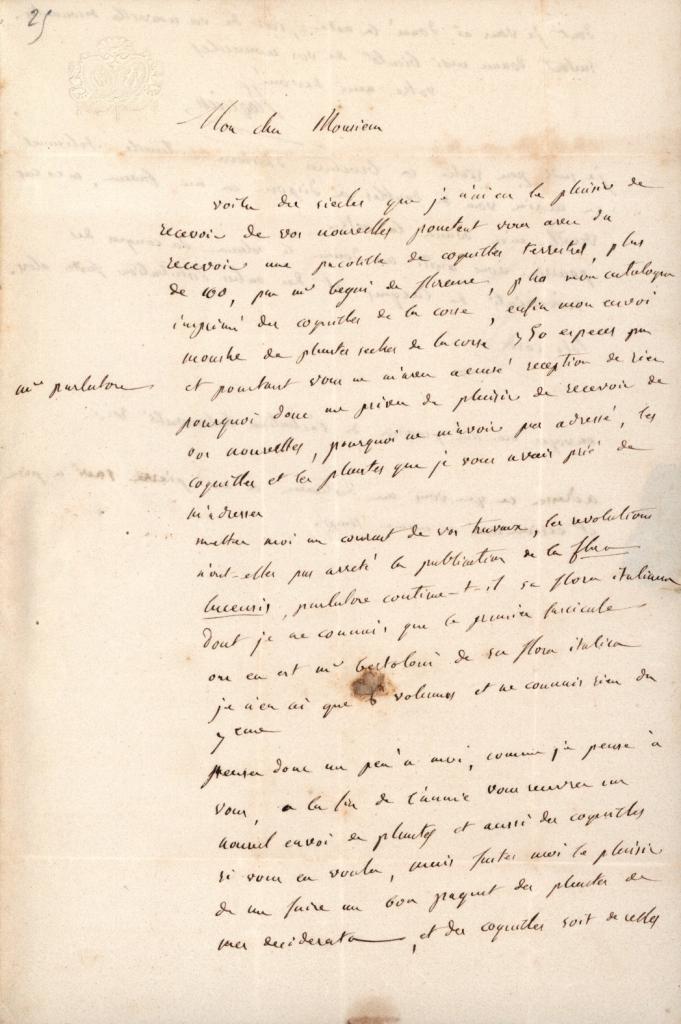 25
Mon cher Monsieur
voila des siecles que je n'ai eu le plaisir de
recevoir de vos nouvelles pourtant vous avez du
recevoir une pacotille de coquilles terrestres, plus
de 100, par mr de florence, plus mon catalogue
imprimé des coquilles de la corse, enfin mon envoi
de plantes seches de la corse 750 especes par
mr parlatore
et pourtant vous ne m'avez accusé reception de rien
pourquoi donc me priver du plaisir de recevoir de
vos nouvelles, pourquoi ne m'avoir pas adressé, les
coquilles et les plantes que je vous avais prié de
m'adresser
mettez moi au courant de vos travaux, les revolutions
n'ont-elles pas arreté la publication de la flora
lucensis, parlatore continue-t-il sa flora italiana
dont je ne connais que le premier fascicule
ou en est mr bertoloni de sa flora italica
je n'en ai que 6 volumes et ne connais rien du
7eme
pensez donc un peu a moi, comme je pense à
vous, a la fin de l'année vous recevrez un
nouvel envoi de plantes et aussi des coquilles
si vous en voulez, mais faites moi le plaisir
de me faire un bon paquet des plantes de
mes desiderata, et des coquilles soit de celles